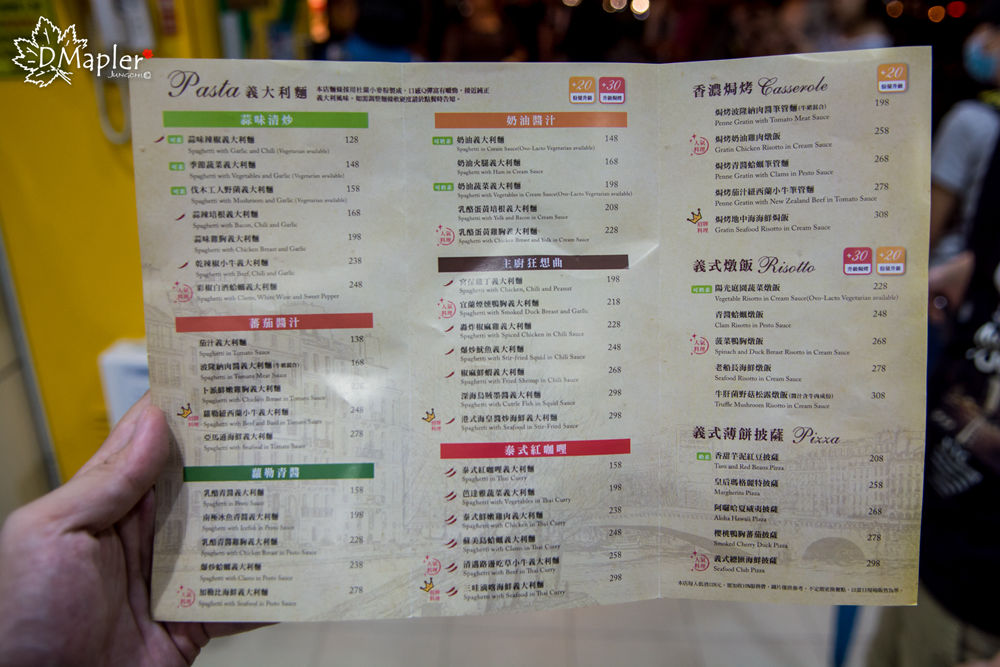 DMapler
Jungom©
Pasta 義大利麵
本店麵條採用杜蘭小麥粉製成，口感Q彈富有嚼勁，接近純正
義大利風味，如需調整麵條軟硬度請於點餐時告知。
+20
+30
升級焗烤
蒜味清炒
可素
蒜味辣椒義大利麵 128
Spaghetti with Garlic and Chili (Vegetarian available)
可素
季節蔬菜義大利麵 148
Spaghetti with Vegetables and Garlic (Vegetarian available)
可素
伐木工人野菌義大利麵 158
Spaghetti with Mushroom and Garlic (Vegetarian available)
蒜辣培根義大利麵 168
Spaghetti with Bacon, Chili and Garlic
蒜味雞胸義大利麵 198
Spaghetti with Chicken Breast and Garlic
乾辣椒小牛義大利麵 238
Spaghetti with Beef, Chili and Garlic
人氣料理
彩椒白酒蛤蠣義大利麵 248
Spaghetti with Clams, White Wine and Sweet Pepper
蕃茄醬汁
茄汁義大利麵 138
Spaghetti in Tomato Sauce
波隆納肉醬義大利麵(牛豬混合) 168
Spaghetti in Tomato Meat Sauce
卜派鮮嫩雞胸義大利麵
Spaghetti with Chicken Breast in Tomato Sauce
招牌料理
蘿勒紐西蘭小牛義大利麵
Spaghetti with Beef and Basil in Tomato Sauce
亞馬遜海鮮義大利麵 278
Spaghetti with Seafood in Tomato Sauce
蘿勒青醬
乳酪青醬義大利麵 158
Spaghetti in Pesto Sauce
南極冰魚青醬義大利麵 198
Spaghetti with Icefish in Pesto Sauce
乳酪青醬雞胸義大利麵 228
Spaghetti with Chicken Breast in Pesto Sauce
爆炒蛤蠣義大利麵 238
Spaghetti with Clams in Pesto Sauce
人氣料理
加勒比海鮮義大利麵 278
Spaghetti with Seafood in Pesto Sauce
奶油醬汁
可奶素
奶油義大利麵 148
Spaghetti in Cream Sauce(Ovo-Lacto Vegetarian available)
奶油火腿義大利麵 168
Spaghetti with Ham in Cream Sauce
可奶素
奶油蔬菜義大利麵 198
Spaghetti with Vegetables in Cream Sauce(Ovo-Lacto Vegetarian available)
乳酪蛋黃培根義大利麵 208
Spaghetti with Yolk and Bacon in Cream Sauce
人氣料理
乳酪蛋黃雞胸義大利麵 228
Spaghetti with Chicken Breast and Yolk in Cream Sauce
主廚狂想曲
宮保雞丁義大利麵 198
Spaghetti with Chicken, Chili and Peanut
人氣料理
宜蘭煙燻鴨胸義大利麵 218
Spaghetti with Smoked Duck Breast and Garlic
轟炸椒麻雞義大利麵 228
Spaghetti with Spiced Chicken in Chili Sauce
爆炒魷魚義大利麵 248
Spaghetti with Stir-fried Squid in Chili Sauce
椒麻鮮蝦義大利麵 268
Spaghetti with Fried Shrimp in Chili Sauce
深海烏賊墨醬義大利麵 298
Spaghetti with Cuttle Fish in Squid Sauce
招牌料理
港式海皇醬炒海鮮義大利麵 298
Spaghetti with Seafood in Stir-Fried Sauce
泰式紅咖哩
泰式紅咖哩義大利麵 158
Spaghetti in Thai Curry
芭達雅蔬菜義大利麵 198
Spaghetti with Vegetables in Thai Curry
泰式鮮嫩雞肉義大利麵 238
Spaghetti with Chicken in Thai Curry
蘇美島蛤蠣義大利麵 248
Spaghetti with Clams in Thai Curry
人氣料理
清邁路邊吃草小牛義大利麵 258
Spaghetti with Beef in Thai Curry
招牌料理
三哇滴喀海鮮義大利麵 298
Spaghetti with Seafood in Thai Curry
香濃焗烤 Casserole
+20
焗烤波隆納肉醬筆管麵(牛豬混合) 198
Penne Gratin with Tomato Meat Sauce
人氣料理
焗烤奶油雞肉燉飯 258
Gratin Chicken Risotto in Cream Sauce
焗烤青醬蛤蠣筆管麵 268
Penne Gratin with Clams in Pesto Sauce
焗烤茄汁紐西蘭小牛筆管麵 278
Penne Gratin with New Zealand Beef in Tomato Sauce
招牌料理
焗烤地中海海鮮焗飯 308
Gratin Seafood Risotto in Cream Sauce
義式燉飯 Risotto
+30
升級焗烤
+20
可奶素
陽光庭園蔬菜燉飯 228
Vegetable Risotto in Cream Sauce(Ovo-Lacto Vegetarian available)
青醬蛤蠣燉飯 248
Clam Risotto in Pesto Sauce
人氣料理
菠菜鴨胸燉飯 268
Spinach and Duck Breast Risotto in Cream Sauce
老船長海鮮燉飯 278
Seafood Risotto in Cream Sauce
牛肝菌野菇松露燉飯(醬汁含牛肉成份) 308
Truffle Mushroom Risotto in Cream Sauce
義式薄餅披薩 Pizza
奶素
香甜芋泥紅豆披薩 208
Taro and Red Beans Pizza
皇后瑪格麗特披薩 258
Margherita Pizza
阿囉哈夏威夷披薩 268
Aloha Hawaii Pizza
櫻桃鴨胸蕃茄披薩 278
Smoked Cherry Duck Pizza
人氣料理
義式總匯海鮮披薩 298
Seafood Club Pizza